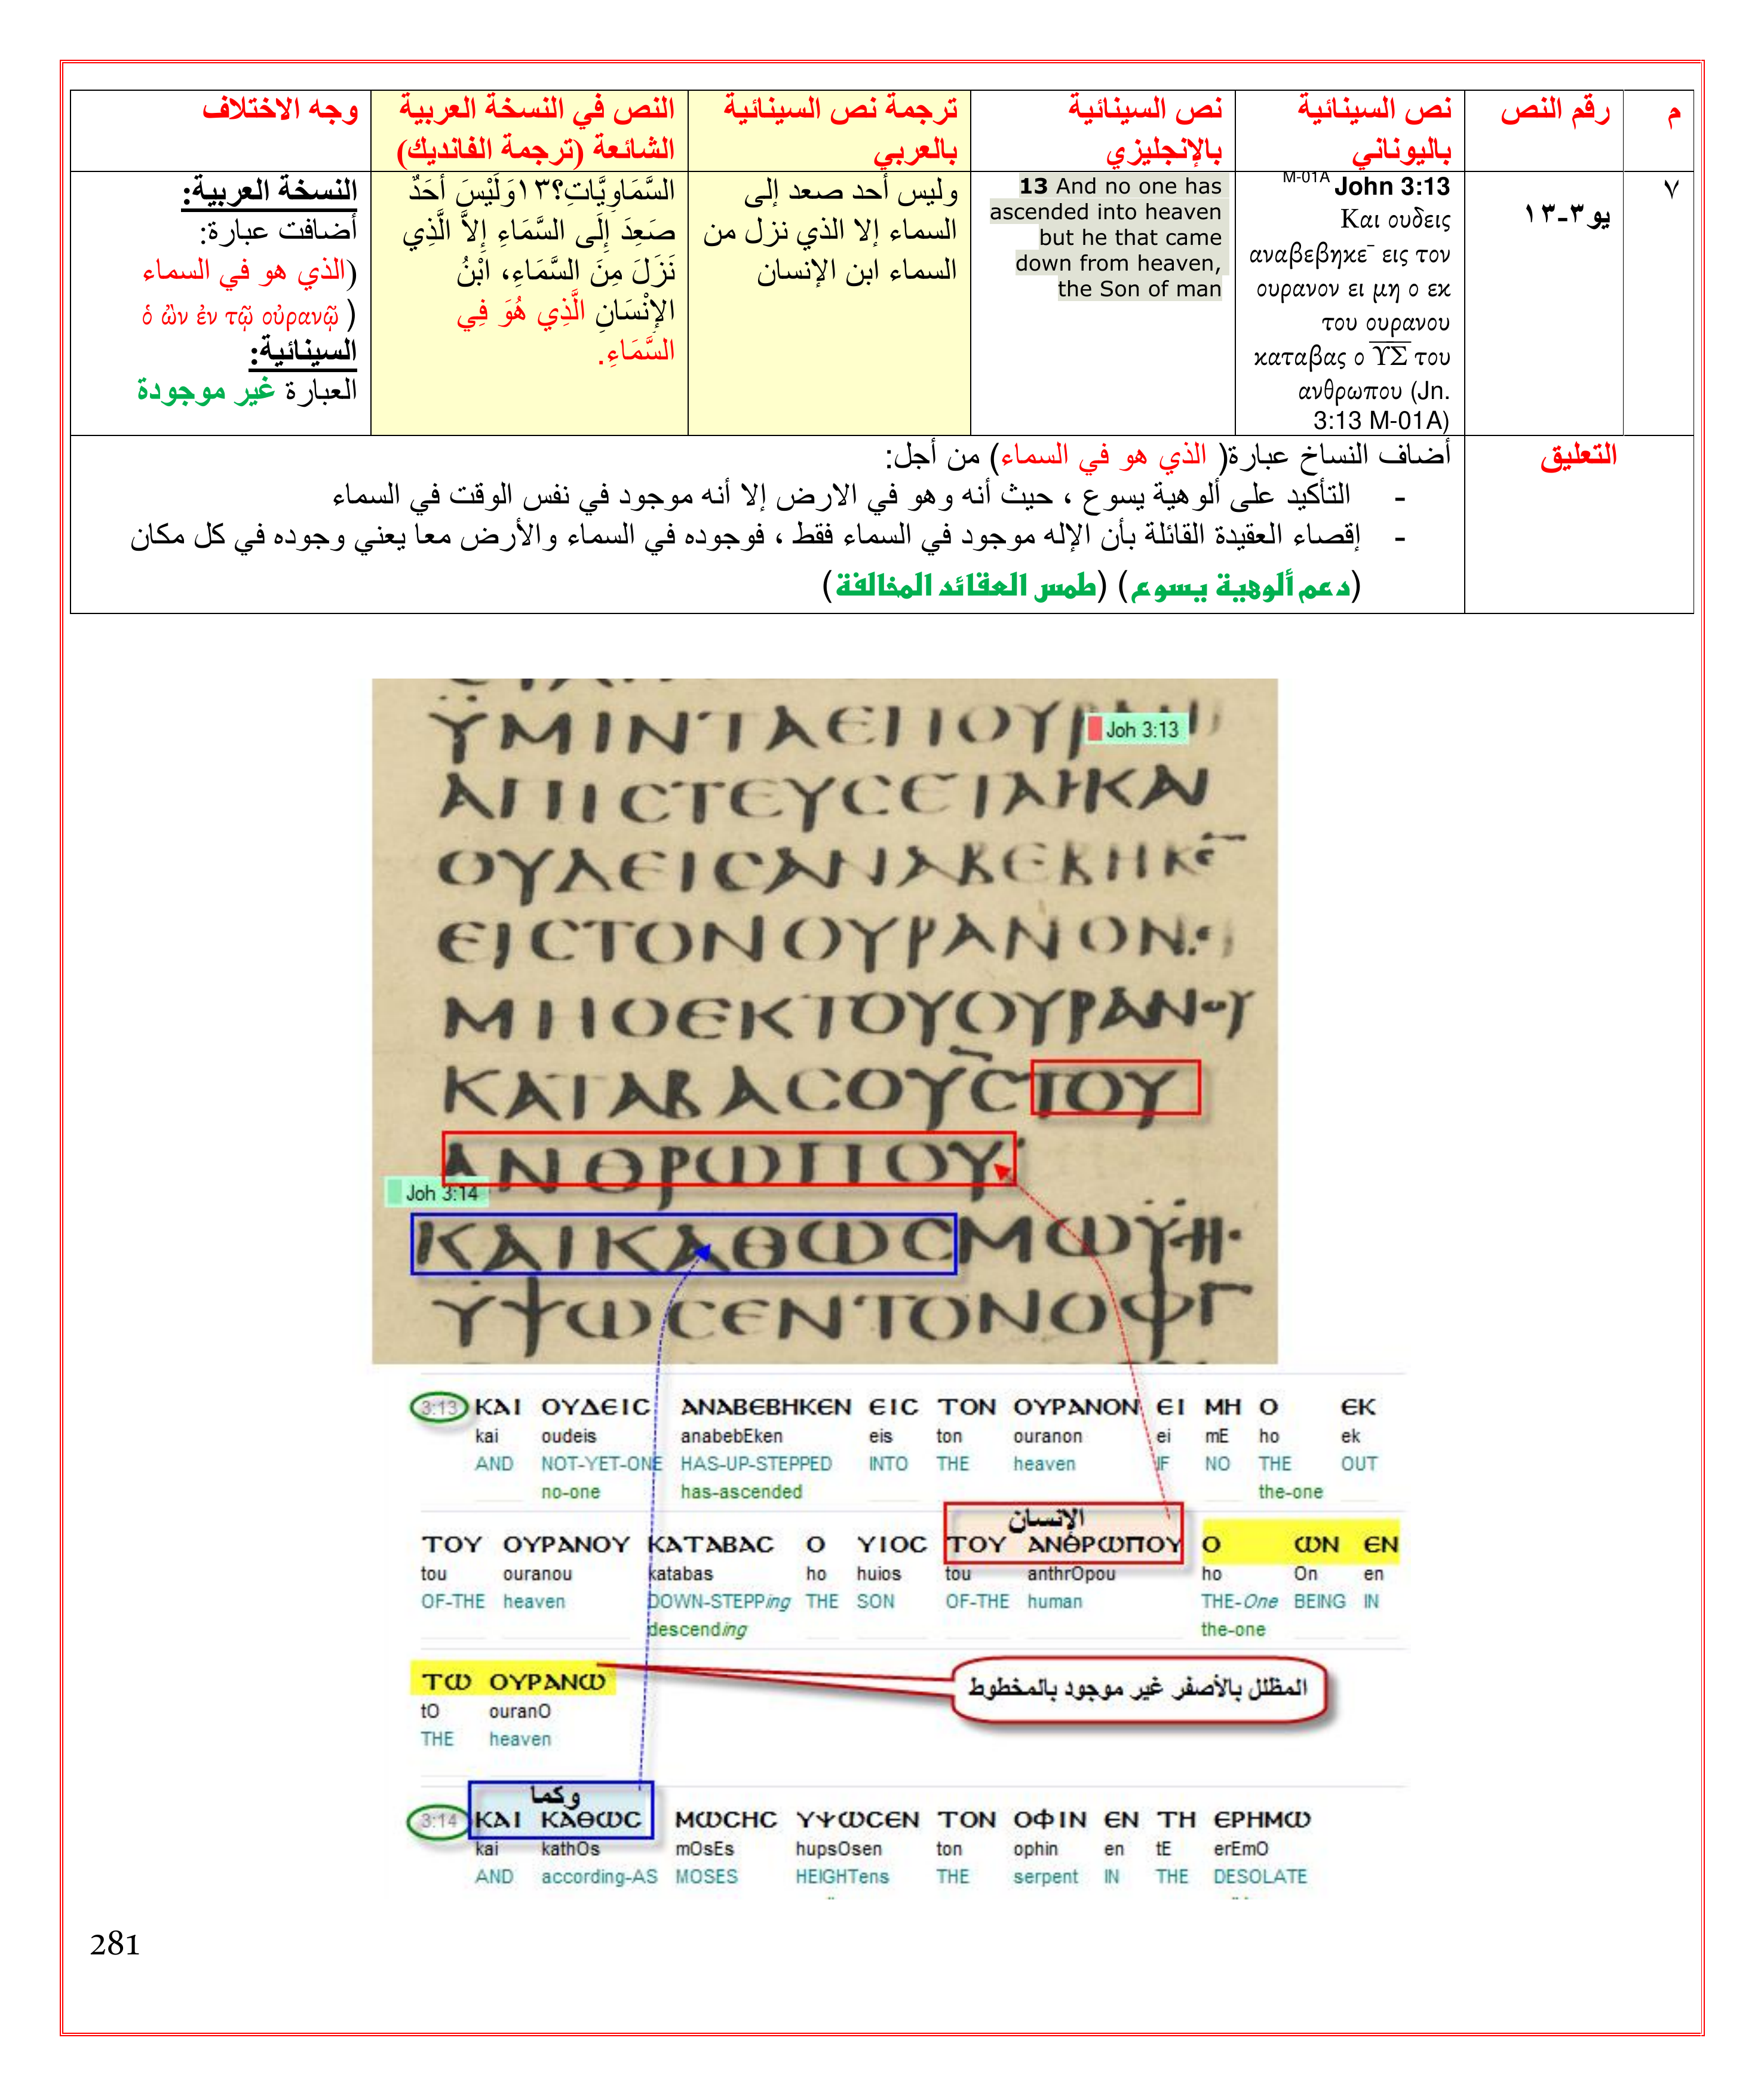 م
رقم النص
نص السينائية
باليوناني
نص السينائية
بالإنجليزي
ترجمة نص السينائية
بالعربي
النص في النسخة العربية
الشائعة (ترجمة الفانديك)
وجه الاختلاف
٧
يو٣-١٣
M-01A John 3:13
Και ουδεις
αναβεβηκε¯ εις τον
ουρανον ει μη ο εκ
του ουρανου
καταβας ο ΥΣ του
ανθρωπου (Jn.
3:13 M-01A)
13 And no one has
ascended into heaven
but he that came
down from heaven,
the Son of man
وليس أحد صعد إلى
السماء إلا الذي نزل من
السماء ابن الإنسان
السَّمَاوِيَّاتِ؟١٣وَلَيْسَ أَحَدٌ
صَعِدَ إِلَى السَّمَاءِ إِلاَّ الَّذِي
نَزَلَ مِنَ السَّمَاءِ، ابْنُ
الإِنْسَانِ الَّذِي هُوَ فِي
السَّمَاءِ.
النسخة العربية:
أضافت عبارة:
(الذي هو في السماء
( ὁ ὢν ἐν τῷ οὐρανῷ
السينائية:
العبارة غير موجودة
التعليق
أضاف النساخ عبارة( الذي هو في السماء) من أجل:
- التأكيد على ألوهية يسوع ، حيث أنه وهو في الارض إلا أنه موجود في نفس الوقت في السماء
- إقصاء العقيدة القائلة بأن الإله موجود في السماء فقط ، فوجوده في السماء والأرض معا يعني وجوده في كل مكان
(دعم ألوهية يسوع) (طمس العقائد المخالفة)
ΫΜΙΝΤΑΕΠΟΥΡ
Joh 3:13
ΑΠΙCΤΕΥCΕΤΑΙΚΑΙ
ΟΥΔΕΙCΑΝΑΒΕΒΗΚΕ¯
ΕΙCΤΟΝΟΥΡΑΝΟΝ·ΕΙ
ΜΗΟΕΚΤΟΥΟΥΡΑΝΟΥ
ΚΑΤΑΒΑCΟΥCΤΟΥ
ΑΝΘΡΩΠΟΥ
Joh 3:14
ΚΑΙΚΑΘΩCΜΩΫCΗC
ΫΨΩCΕΝΤΟΝΟΦΙ
3:13 ΚΑΙ ΟΥΔΕΙC ΑΝΑΒΕΒΗΚΕΝ ΕΙC ΤΟΝ ΟΥΡΑΝΟΝ ΕΙ ΜΗ Ο ΕΚ
kai oudeis anabebEken eis ton ouranon ei mE ho ek
AND NOT-YET-ONE HAS-UP-STEPPED INTO THE heaven IF NO THE OUT
no-one has-ascended the-one
الإنسان
ΤΟΥ ΟΥΡΑΝΟΥ ΚΑΤΑΒΑC Ο ΥΙΟC ΤΟΥ ΑΝΘΡΩΠΟΥ Ο ΩΝ ΕΝ
tou ouranou katabas ho huios tou anthrOpou ho On en
OF-THE heaven DOWN-STEPPing THE SON OF-THE human THE-One BEING IN
descending the-one
ΤΩ ΟΥΡΑΝΩ
tO ouranO
THE heaven
المظلل بالأصفر غير موجود بالمخطوط
وكما
3:14 ΚΑΙ ΚΑΘΩC ΜΩCΗC ΥΨΩCΕΝ ΤΟΝ ΟΦΙΝ ΕΝ ΤΗ ΕΡΗΜΩ
kai kathOs mOsEs hupsOsen ton ophin en tE erEmO
AND according-AS MOSES HEIGHTens THE serpent IN THE DESOLATE
281